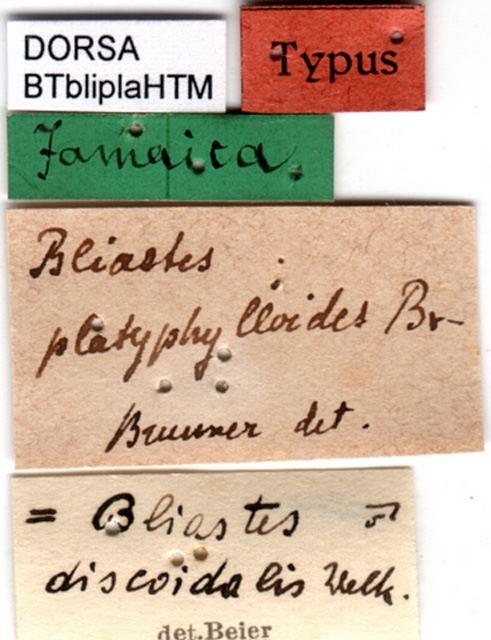 DORSA
BTbliplaHTM
Typus
Jamaica.
Bliastes
platyphylloides Br-
Brunner det.
= Bliastes
discoidalis Welk.
det.Beier